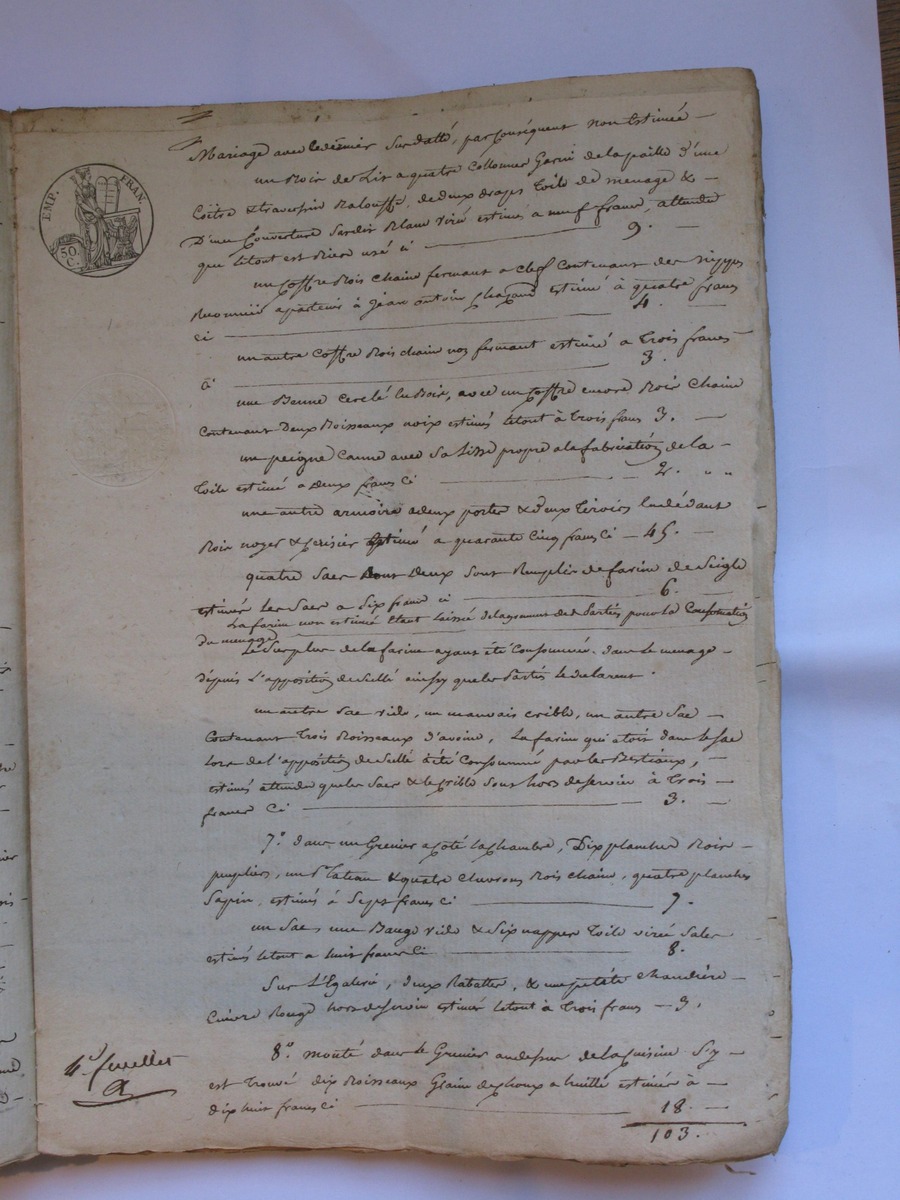 EMP. FRAN.
50 C.
Mariage avec le dernier Surdatté, par Conséquent non Estimée —
un Bois de Lis a quatre Collonnes Garni de la paille d'une
Coëtre & traversin Balouffe, de deux draps Toile de menage & —
D'une Couverture Sardis Blanc Viré estimés a neuf francs, attendu
que letout est Bien usé ci — 9. —
un Coffre Bois chaine fermant a Clef Contenant des nippes
apartenir à Jean antoine Chazand estimé à quatre francs
Ci — 4. —
un autre Coffre Bois chain non fermant estimé a Trois francs —
Ci — 3.
une Benne Cerclé En Bois, avec un Coffre encore Bois Chaine
Contenant Deux Boisseaux noix estimés letout à Trois frans 3. —
un peigne Canne avec Sa Lisse propre a la fabrication de la —
Toile estimé a Deux frans Ci — 2. " "
une autre armoire a deux portes & deux Tiroirs Endédans
Bois noyer & Cerisier Estimé a quarante Cinq frans Ci — 45. —
quatre Sacs Dont Deux Sont Remplis de farine de Seigle
estimés les Sacs a Six francs ci — 6. —
La farine non estimée Etant Laissée delagrement des Parties pour la Consommation
du menage
Le Surplus de la farine ayant été Consommée dans le menage —
depuis L'apposition du Scellé ainsy que les Parties le declarent.
un autre Sac vide, un mauvais crible, un autre Sac —
Contenant Trois Boisseaux d'avoine, La farine qui etois dans le Sac
Lors de l'apposition du Scellé a été Consommé par les Bestiaux, —
estimés attendu que les Sacs & le Crible Sont hors de Servir à Trois —
francs Ci — 3. —
7.° dans un Grenier a Coté la Chambre, Dix planches Bois —
peuplier, un & quatre Chevrons Bois chaine, quatre planches
Sapin, estimés à Sept francs Ci — 7.
un Sac, une Bauge vide & Six nappes Toile virée Sales
estimés letout a huit francs Ci — 8.
Sur L'Egalerie, deux Rabattes, & une petite Chaudière —
Cuivre Rouge hors de Servir estimés letout à Trois frans — 3.
8.° monté dans le Grenier au dessus de la Cuisine S'y —
est Trouvé dix Boisseaux Graine de choux a huille estimés à —
dix huit francs Ci — 18. —
103.
4.e feuillet